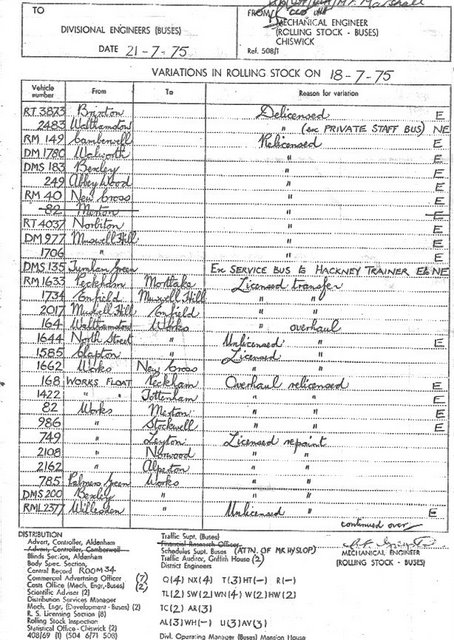 TO
FROM
DIVISIONAL ENGINEERS (BUSES)
MECHANICAL ENGINEER
(ROLLING STOCK - BUSES)
CHISWICK
DATE 21-7-75
Ref. 508/1
VARIATIONS IN ROLLING STOCK ON 18-7-75
Vehicle number From To Reason for variation
RT 3873 Brixton Delicensed E
2483 Walthamstow " (ex PRIVATE STAFF BUS) NE
RM 149 Camberwell Relicensed E
DM 1780 Walworth " E
DMS 183 Bexley " E
249 Abbey Wood " E
RM 40 New Cross " E
82 Merton " E
RT 4037 Norbiton " E
DM 977 Muswell Hill " E
1706 " " E
DMS 135 Turnham Green Ex SERVICE BUS to HACKNEY TRAINER E to NE
RM 1633 Peckham Mortlake Licensed transfer
1734 Enfield Muswell Hill " "
2017 Muswell Hill Enfield " "
164 Walthamstow Works " overhaul
1644 North Street " Unlicensed " E
1585 Clapton " Licensed "
1662 Works New Cross " "
168 WORKS FLOAT Peckham Overhaul relicensed E
1422 " " Tottenham " " E
82 Works Merton " " E
986 " Stockwell " " E
749 " Leyton Licensed repaint
2108 " Norwood " "
2162 " Alperton " "
785 Palmers Green Works " "
DMS 200 Bexley " "
RML 2377 Willesden " Unlicensed " E
continued over
DISTRIBUTION
Advert. Controller, Aldenham
Advert. Controller, Camberwell
Blinds Section, Aldenham
Body Spec. Section,
Central Record ROOM 34
Commercial Advertising Officer (7)
Costs Office (Mech. Engr.-Buses) (2)
Scientific Adviser (2)
Distribution Services Manager
Mech. Engr. (Development - Buses) (2)
R. S. Licensing Section (8)
Rolling Stock Inspection
Statistical Office - Chiswick (2)
408/69 (1) (504 6/71 508)
Traffic Supt. (Buses)
Financial Research Officer
Schedules Supt. Buses (ATTN. OF MR HYSLOP)
Traffic Auditor, Griffith House (2)
District Engineers
Q(4) NX(4) T(3) HT(-) R(-)
TL(2) SW(2) WN(4) W(2) HW(2)
TC(2) AR(3)
AL(3) WH(-) U(3) AV(3)
Divl. Operating Manager (Buses) Mansion House
MECHANICAL ENGINEER
(ROLLING STOCK - BUSES)